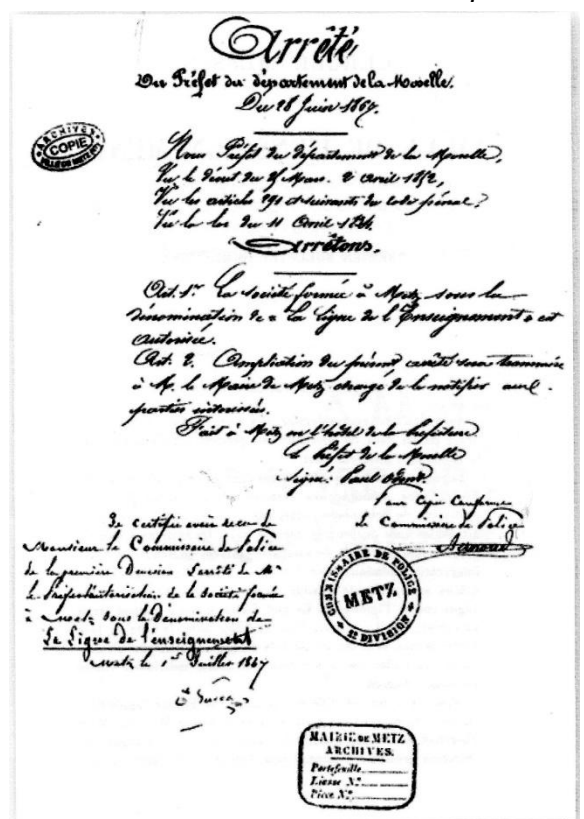 Arrêté
Du Préfet du département de la Moselle.
Du 28 Juin 1867.
ARCHIVES
COPIE
VILLE DE METZ
Nous Préfet du département de la Moselle,
Vu le décret du 25 Mars. 2 Avril 1852,
Vu les articles 291 et suivants du code pénal;
Vu la loi du 11 Avril 1834.
Arrêtons.
Art. 1er La société formée à Metz sous la
dénomination de « La Ligue de l'Enseignement » est
autorisée.
Art. 2. Ampliation du présent arrêté sera transmise
à M. le Maire de Metz chargé de le notifier aux
parties intéressées.
Fait à Metz en l'hôtel de la Préfecture
Le Préfet de la Moselle
Signé: Paul Odent.
Pour Copie Conforme
Le Commissaire de Police
Je certifie avoir reçu de
Monsieur le Commissaire de Police
de la première Division l'arrêté de Mr
le Préfet autorisation de la Société formée
à Metz sous la Dénomination de
La Ligue de l'enseignement
Metz le 1er Juillet 1867
COMMISSAIRE DE POLICE
METZ
DIVISION
MAIRIE DE METZ
ARCHIVES.
Portefeuille
Liasse No.
Pièce No.